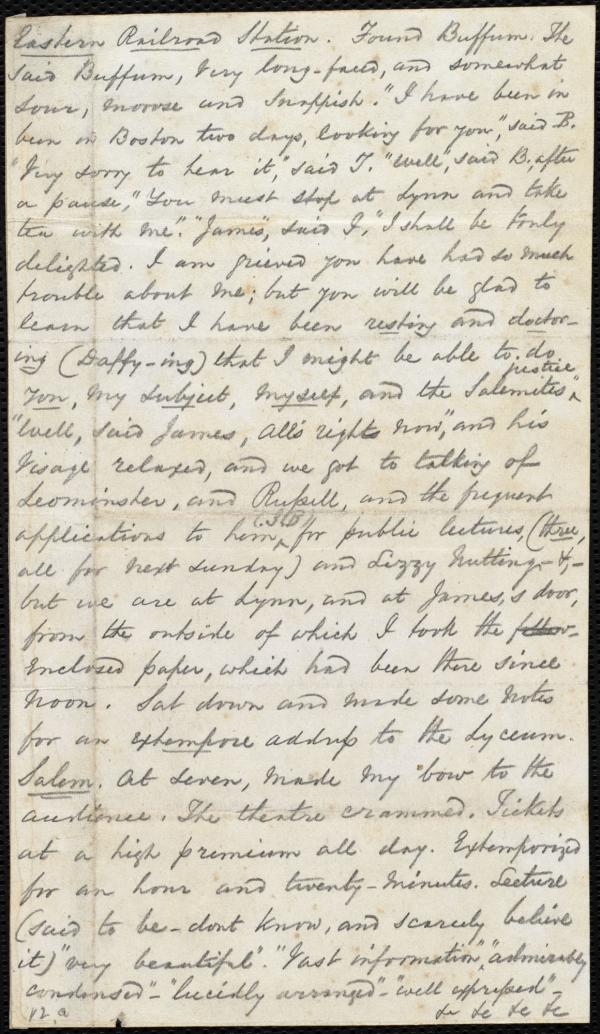 Eastern Railroad Station. Found Buffum. The
said Buffum, very long-faced, and somewhat
sour, morose and snappish. "I have been in
been in Boston two days, looking for you", said B.
"Very sorry to hear it," said I. "Well", said B., after
a pause, "You must stop at Lynn and take
tea with me". "James", said I, "I shall be truly
delighted. I am grieved you have had so much
trouble about me; but you will be glad to
learn that I have been resting and doctor-
ing (Daffy-ing) that I might be able to do
justice
you, my subject, myself, and the Salemites".
"Well, said James, all's rights now", and his
visage relaxed, and we got to talking of
Leominster, and Russell, and the frequent
(J.B)
applications to him, for public lectures, (three,
all for next Sunday) and Lizzy Nutting - &, -
but we are at Lynn, and at James,s door,
from the outside of which I took the follow-
enclosed paper, which had been there since
noon. Sat down and made some notes
for an extempore address to the Lyceum.
Salem. At seven, made my bow to the
audience. The theatre crammed. Tickets
at a high premium all day. Extemporized
for an hour and twenty-minutes. Lecture
(said to be - dont know, and scarcely believe
it) "very beautiful". "Vast information", "admirably
condensed" - "lucidly arranged" - "well expressed" -
&c &c &c &c